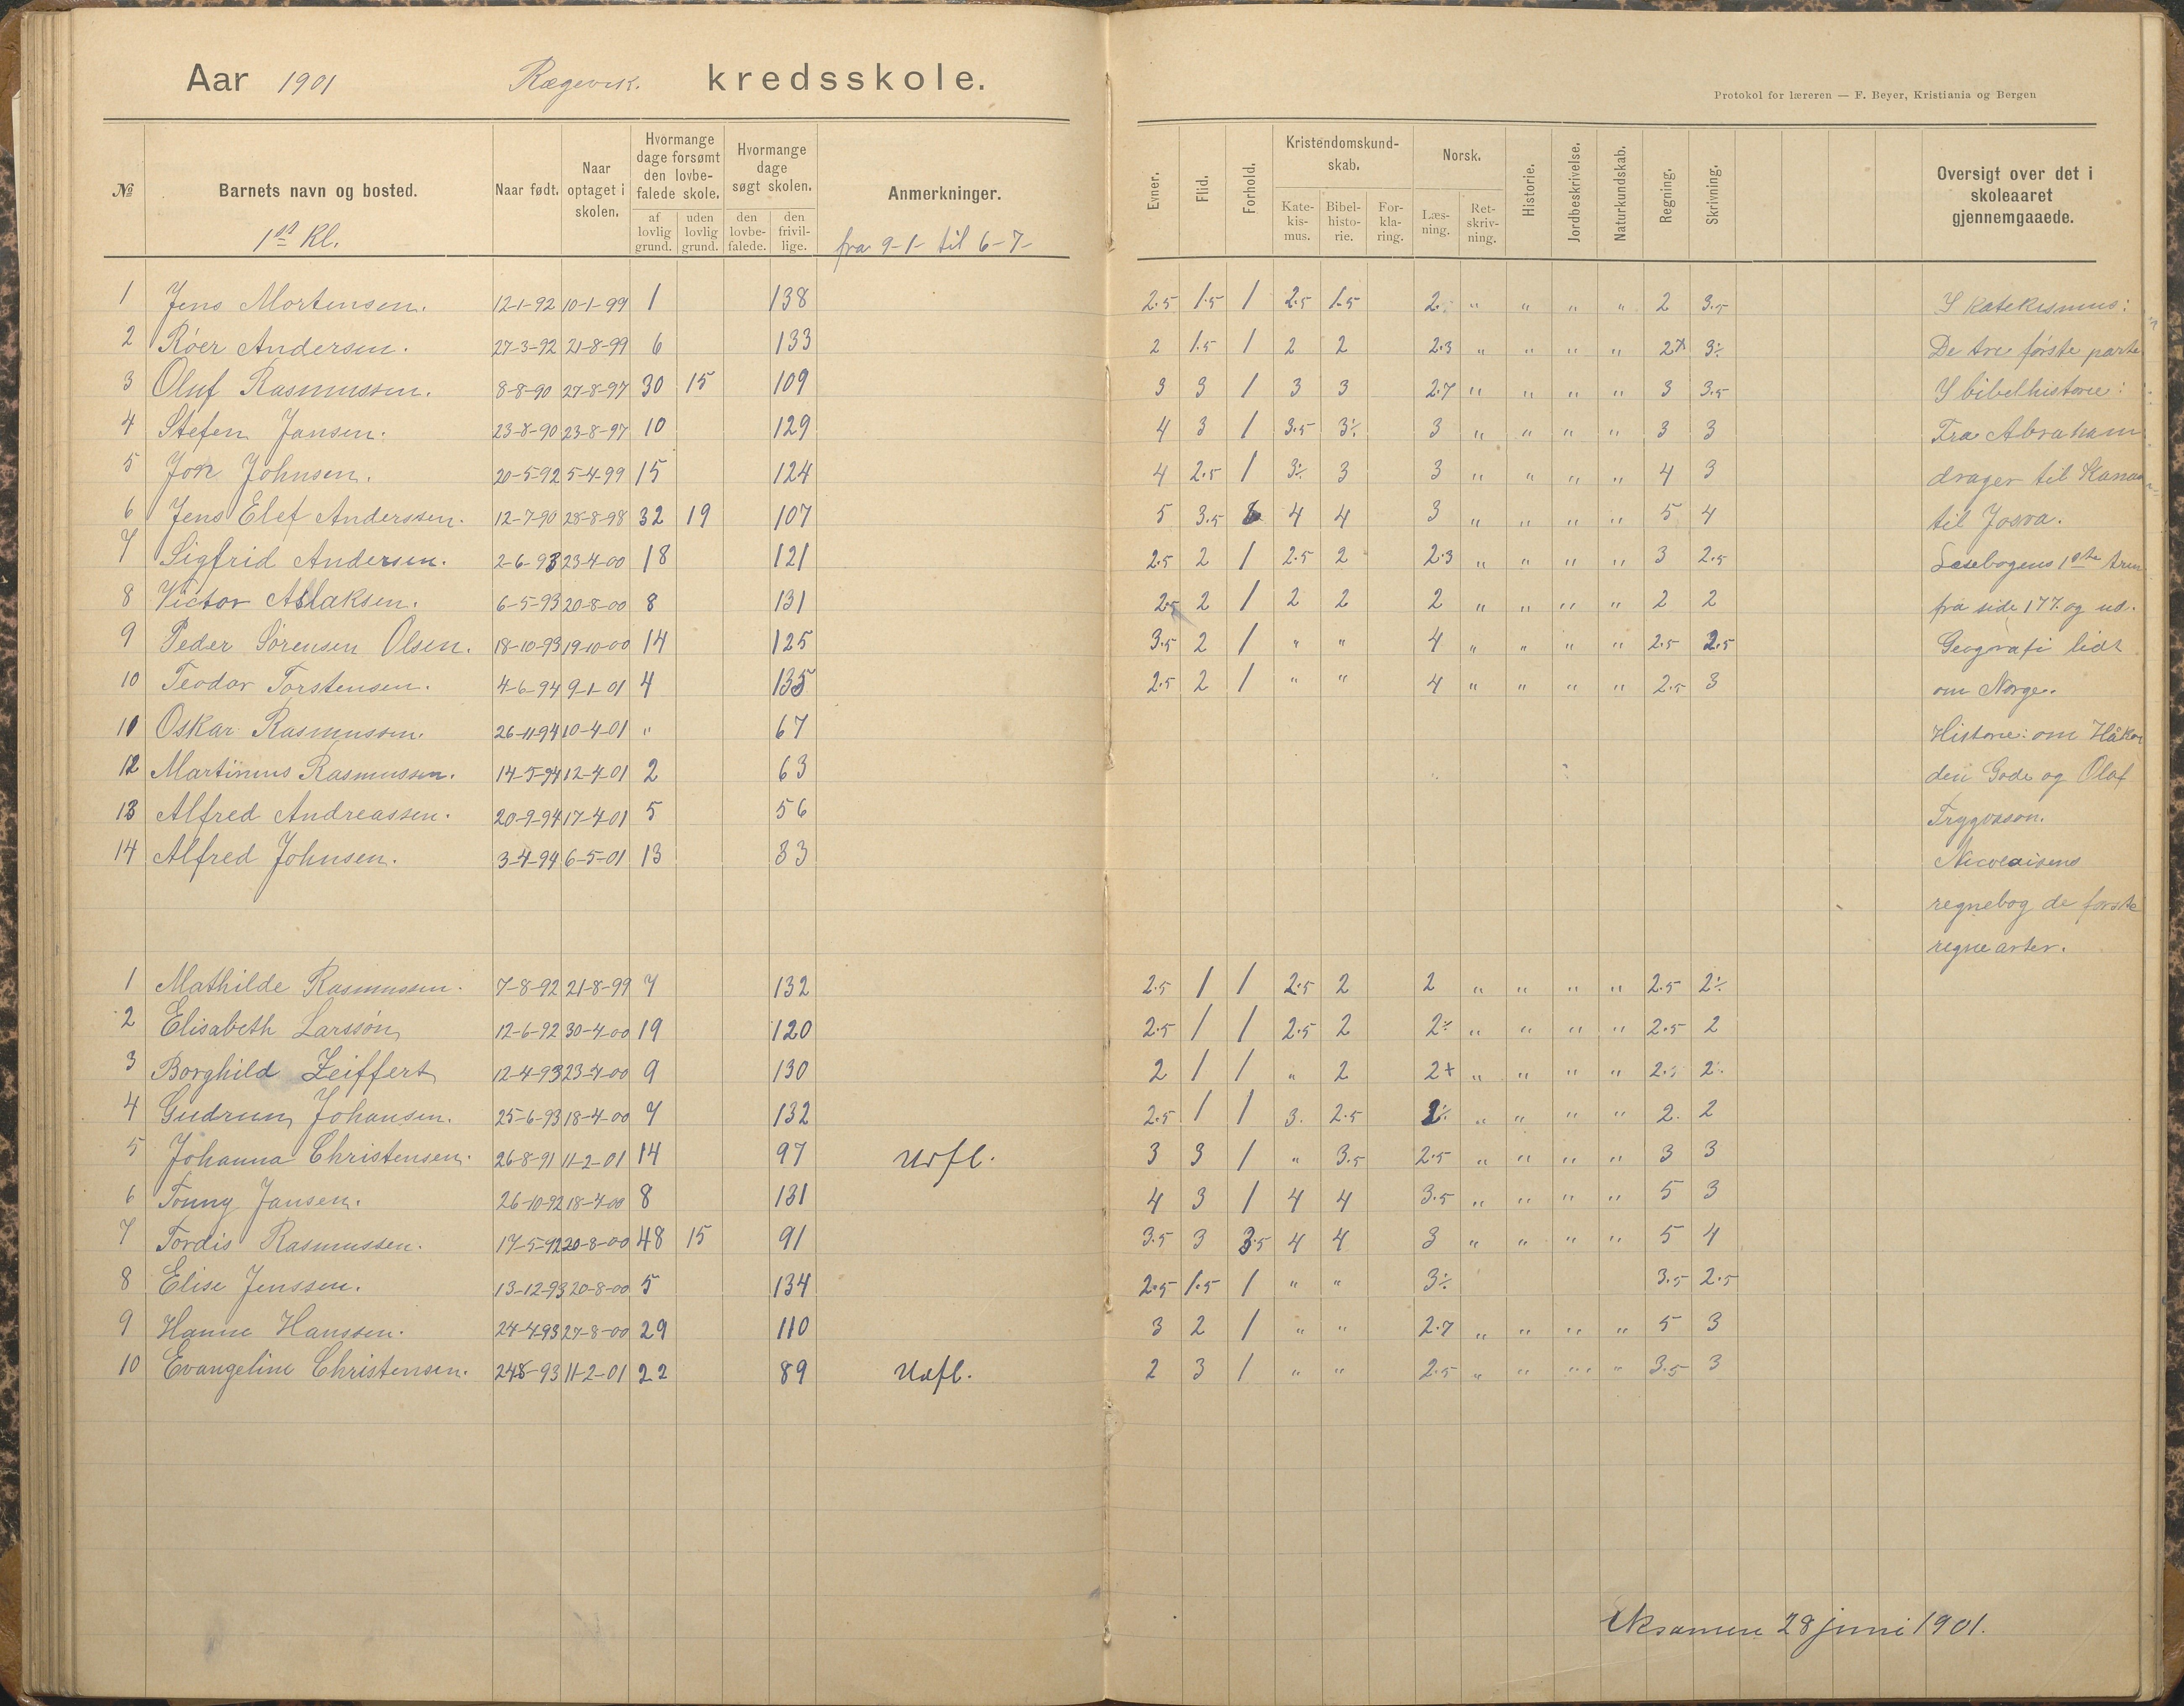 Aar 1901 Rægevik. kredsskole.
Protokol for læreren — F. Beyer, Kristiania og Bergen
№ Barnets navn og bosted. Naar født. Naar optaget i skolen. Hvormange dage forsømt den lovbefalede skole. af lovlig grund. uden lovlig grund. Hvormange dage søgt skolen. den lovbefalede. den frivillige. Anmerkninger. Evner. Flid. Forhold. Kristendomskundskab. Katekismus. Bibelhistorie. Forklaring. Norsk. Læsning. Retskrivning. Historie. Jordbeskrivelse. Naturkundskab. Regning. Skrivning. Oversigt over det i skoleaaret gjennemgaaede.
1ste Kl. fra 9-1- til 6-7-
1 Jens Mortensen. 12-1-92 10-1-99 1 138 2.5 1.5 1 2.5 1.5 2. " " " " 2 3.5 I katekismus:
2 Róer Andersen. 27-3-92 21-8-99 6 133 2 1.5 1 2 2 2.3 " " " " 2+ 3÷ De tre første parte
3 Oluf Rasmussen. 8-8-90 27-8-97 30 15 109 3 3 1 3 3 2.7 " " " " 3 3.5 I bibelhistorie:
4 Stefen Jansen. 23-8-90 23-8-97 10 129 4 3 1 3.5 3÷ 3 " " " " 3 3 Fra Abraham
5 Jon Johnsen. 20-5-92 5-4-99 15 124 4 2.5 1 3÷ 3 3 " " " " 4 3 drager til Kanaan
6 Jens Elef Anderssen. 12-7-90 28-8-98 32 19 107 5 3.5 4 4 3 " " " " 5 4 til Josva.
7 Sigfrid Andersen. 2-6-93 23-4-00 18 121 2.5 2 1 2.5 2 2.3 " " " " 3 2.5 Læsebogens 1ste trin
8 Victor Aslaksen. 6-5-93 20-8-00 8 131 2.5 2 1 2 2 2 " " " " 2 2 fra side 177. og ud.
9 Peder Sørensen Olsen. 18-10-93 19-10-00 14 125 3.5 2 1 " " 4 " " " " 2.5 2.5 Geografi lidt
10 Teodor Torstensen. 4-6-94 9-1-01 4 135 2.5 2 1 " " 4 " " " " 2.5 3 om Norge.
11 Oskar Rasmussen. 26-11-94 10-4-01 " 67 Historie: om Håkon
12 Martinius Rasmussen. 14-5-94 12-4-01 2 63 den Gode og Olaf
13 Alfred Andreassen. 20-9-94 17-4-01 5 56 Trygvason.
14 Alfred Johnsen. 3-4-94 6-5-01 13 33 Nicolaisens
regnebog de første
regnearter.
1 Mathilde Rasmussen. 7-8-92 21-8-99 7 132 2.5 1 1 2.5 2 2 " " " " 2.5 2÷
2 Elisabeth Larssøn 12-6-92 30-4-00 19 120 2.5 1 1 2.5 2 2÷ " " " " 2.5 2
3 Borghild Zeiffert 12-4-93 23-4-00 9 130 2 1 1 " 2 2+ " " " " 2.5 2÷
4 Gudrun Johansen. 25-6-93 18-4-00 7 132 2.5 1 1 3. 2.5 2÷ " " " " 2. 2
5 Johanna Christensen. 26-8-91 11-2-01 14 97 Udfl. 3 3 1 " 3.5 2.5 " " " " 3 3
6 Tonny Jansen. 26-10-92 18-4-00 8 131 4 3 1 4 4 3.5 " " " " 5 3
7 Tordis Rasmussen. 17-5-92 20-8-00 48 15 91 3.5 3 3.5 4 4 3 " " " " 5 4
8 Elise Jenssen. 13-12-93 20-8-00 5 134 2.5 1.5 1 " " 3÷ 3.5 2.5
9 Hanne Hanssen. 24-4-93 27-8-00 29 110 3 2 1 " " 2.7 " " " " 5 3
10 Evangeline Christensen. 24-8-93 11-2-01 22 89 Udfl. 2 3 1 " " 2.5 " " " " 3.5 3
Eksamen 28 juni 1901.